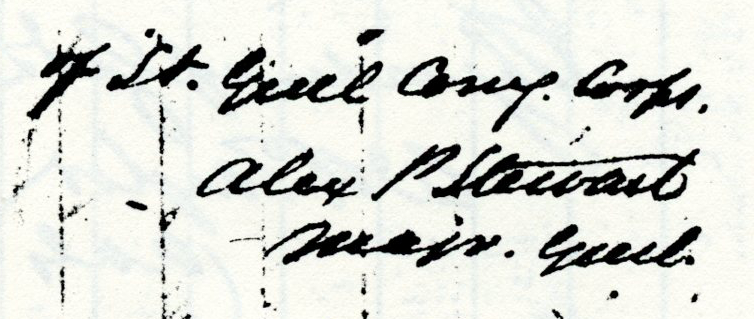 of Lt. Genl Comg. Corps.
Alex P Stewart
Maj. Genl.